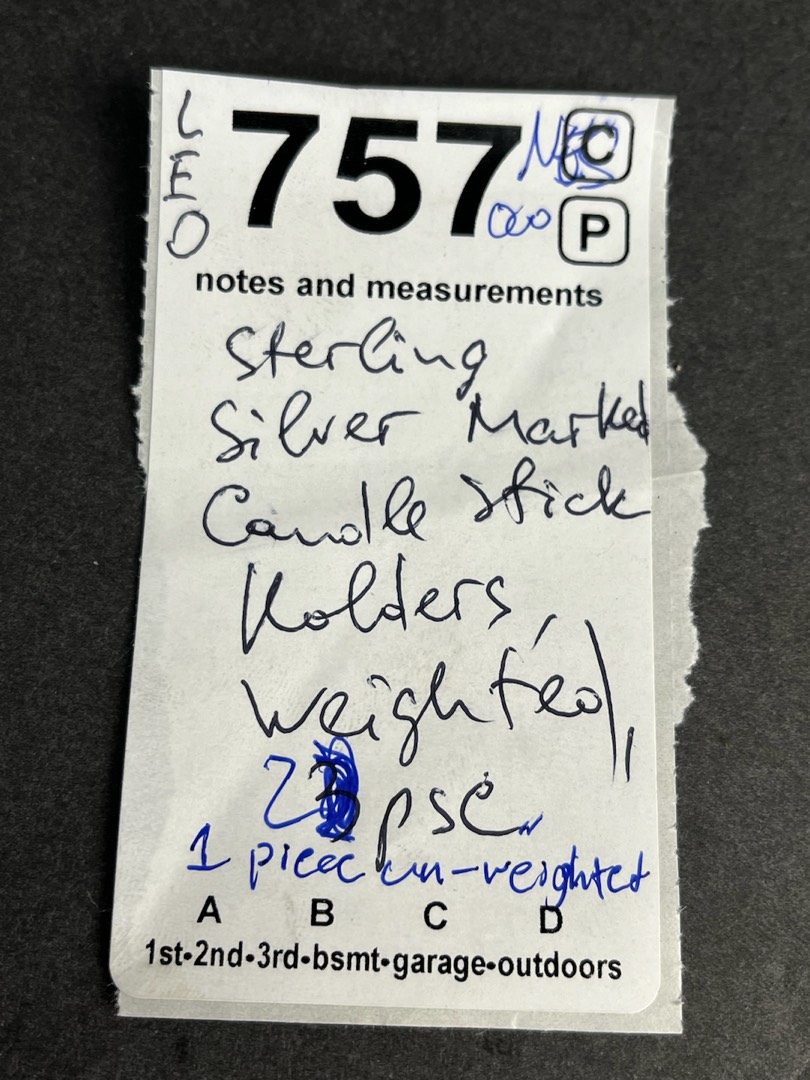 LEO
757
C
P
notes and measurements
Sterling
Silver Marked
Candle stick
Holders,
weighted,
2 psc
1 piece un-weighted
A B C D
1st•2nd•3rd•bsmt•garage•outdoors